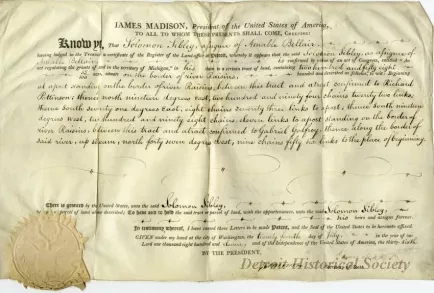 JAMES MADISON, President of the United States of America,
TO ALL TO WHOM THESE PRESENTS SHALL COME, GREETING:
Know ye, The Solomon Sibley, assignee of Amable Bellair
having lodged in the Treasury a certificate of the Register of the Land-office at Detroit, whereby it appears that the said Solomon Sibley, as assignee of
Amable Bellair, confirmed in virtue of an act of Congress, entitled An
act regulating the grants of land in the territory of Michigan, to a certain tract of land, containing hundred and fifty eight
acres, situate on the border of river Raisins, bounded and described as follows, to wit: Beginning
at a post standing on the border of river Raisins, between this tract and a tract confirmed to Richard
Pattinson; thence north nineteen degrees east, two hundred and ninety four chains twenty two links;
thence south seventy one degrees east, eight chains seventy three links to a post; thence south nineteen
degrees west, two hundred and ninety eight chains, eleven links to a post standing on the border of
river Raisins, between this tract and a tract confirmed to Gabriel Godfroy; thence along the border of
said river, up stream, north forty seven degrees west, nine chains fifty two links to the place of beginning.
There is granted by the United States, unto the said Solomon Sibley,
or parcel of land above described; To have and to hold the said tract or parcel of land, with the appurtenances, unto the said Solomon Sibley,
his heirs and assigns forever.
In testimony whereof, I have caused these Letters to be made Patent, and the Seal of the United States to be hereunto affixed.
GIVEN under my hand at the city of Washington, the twenty fourth day of July in the year of our
Lord one thousand eight hundred and eleven, and of the Independence of the United States of America, the thirty-sixth.
BY THE PRESIDENT,
Detroit Historical Society